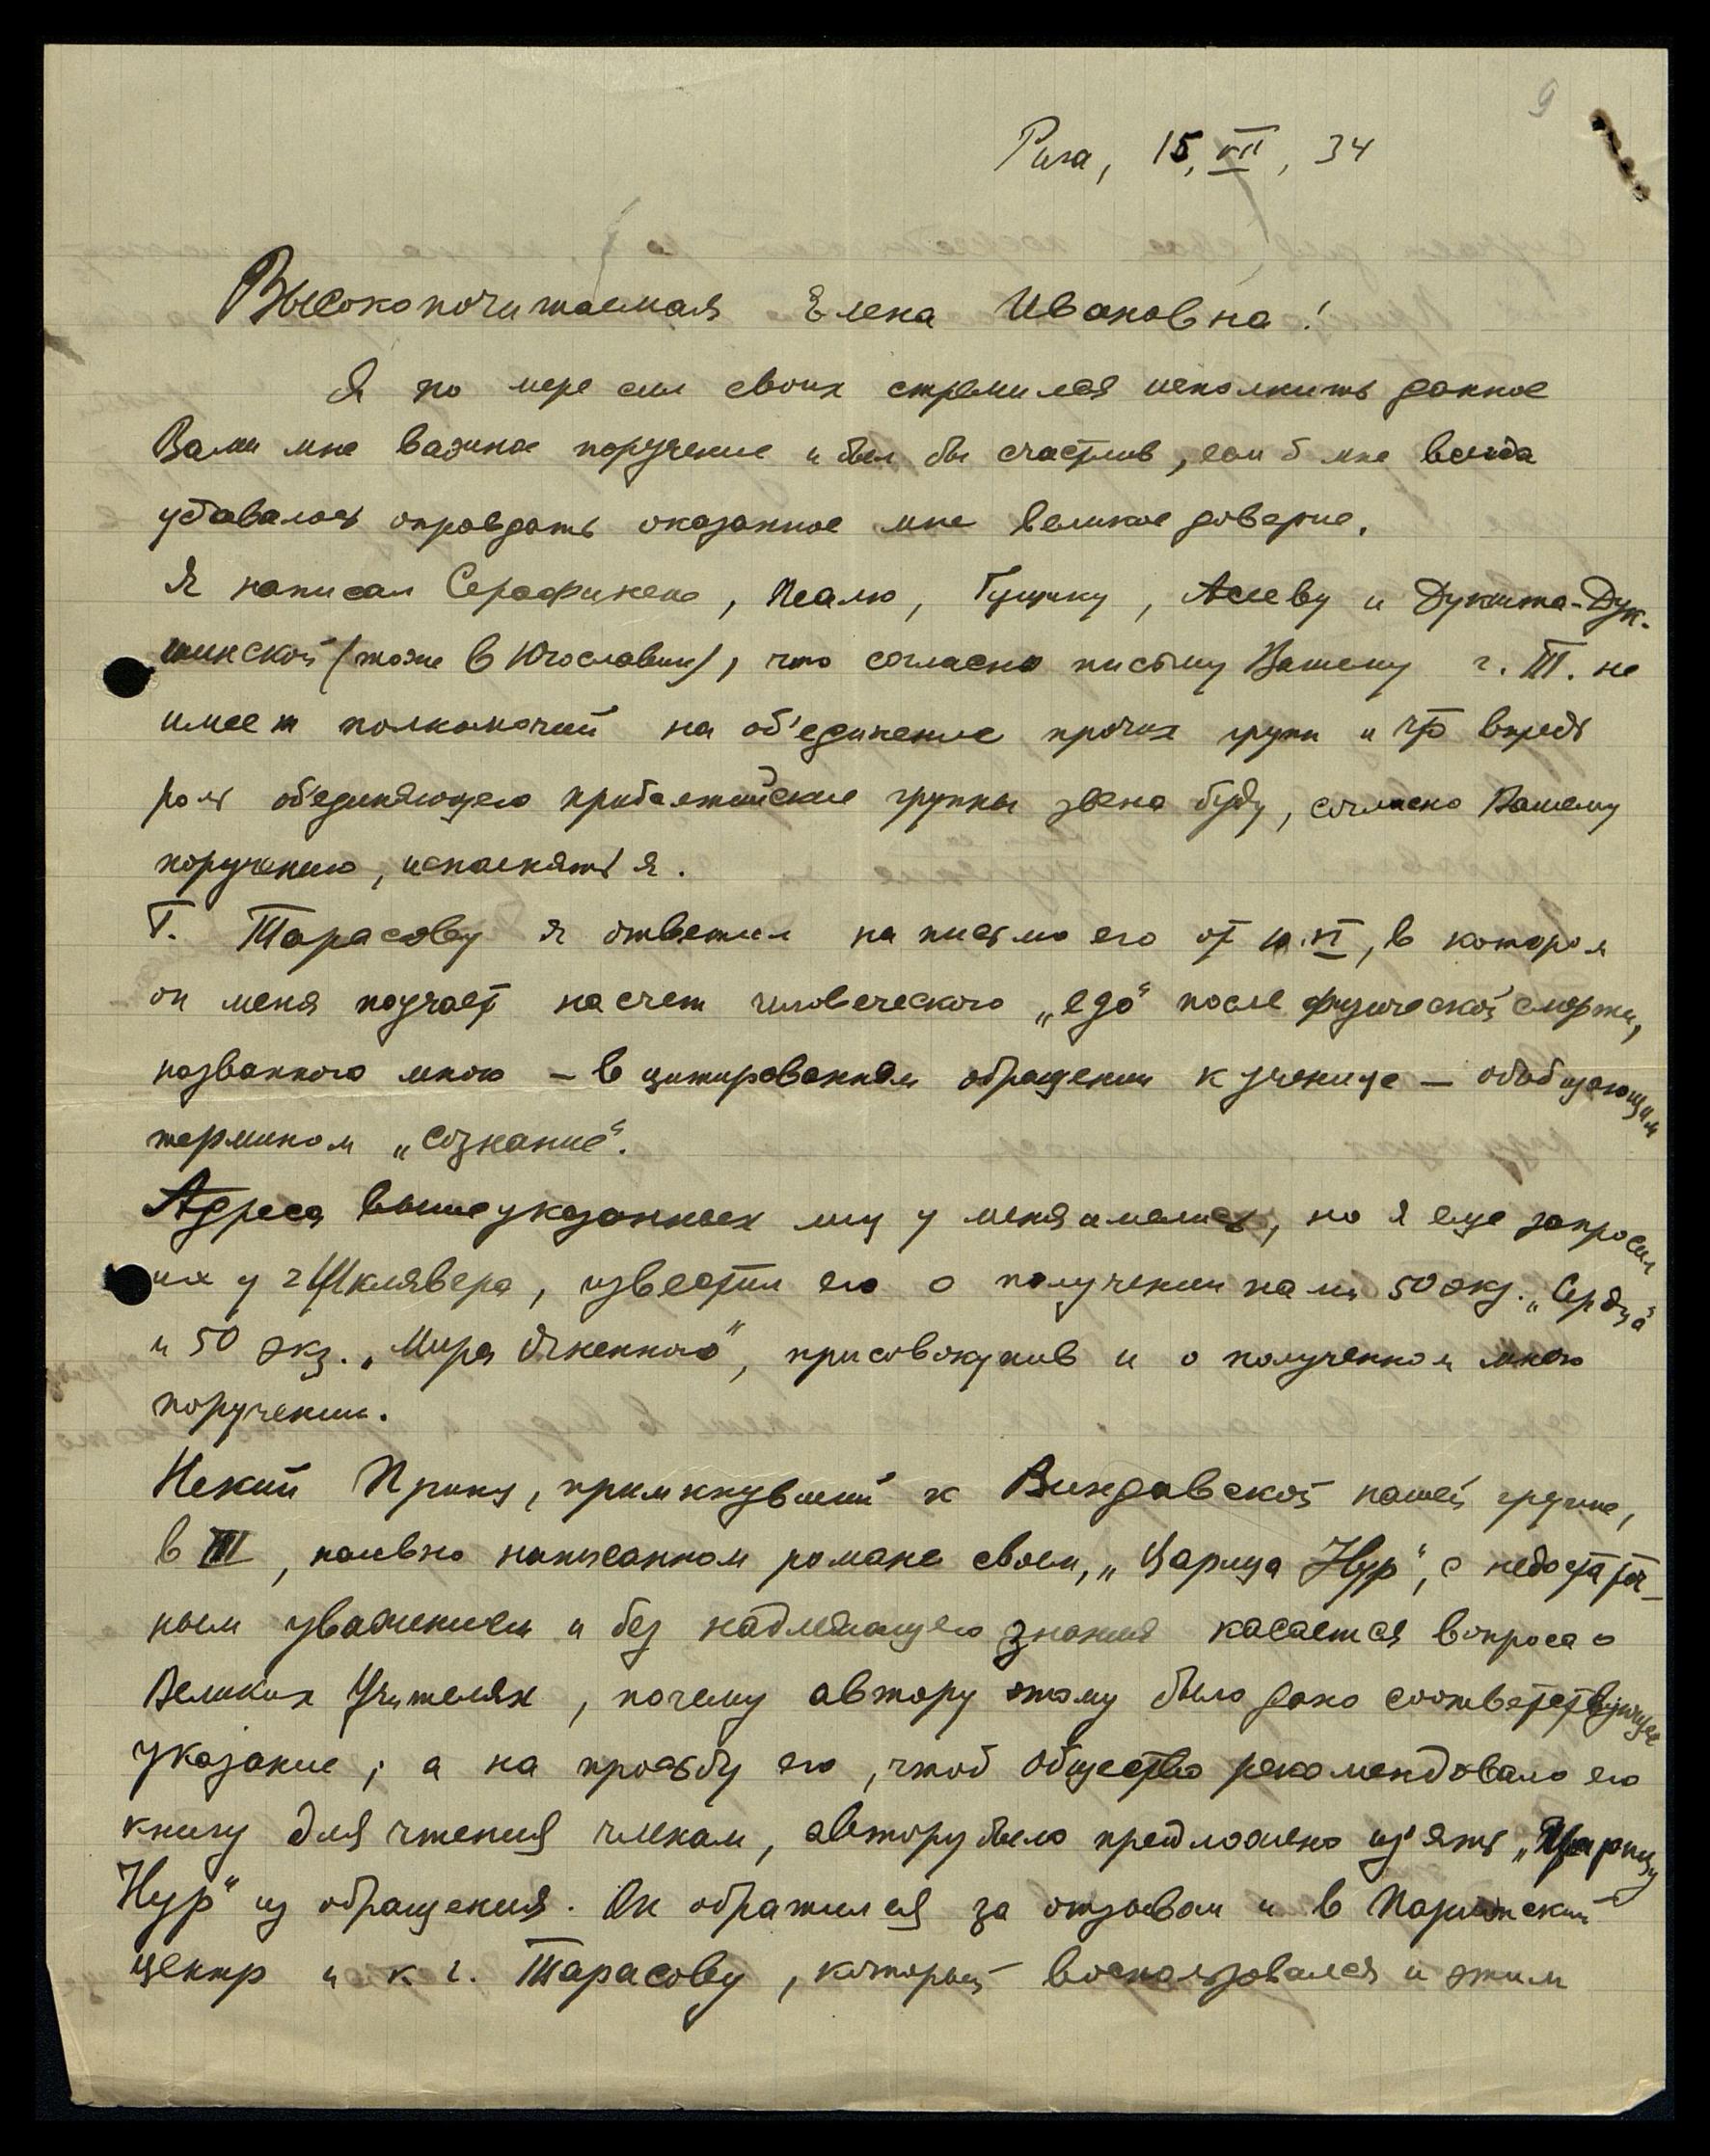 9
Рига, 15, VII, 34
Высокопочитаемая Елена Ивановна!
Я по мере сил своих стремился исполнить данное
Вами мне важное поручение и был бы счастлив, если б мне всегда
удавалось оправдать оказанное мне великое доверие.
Я написал Серафинене, Псалю, Гущику, Асееву и Дукшта-Дук-
шинской (тоже в Югославии), что согласно письму Вашему г. Т. не
имеет полномочий на об'единение прочих групп и что впредь
роль об'единяющего прибалтийские группы звена буду, согласно Вашему
поручению, исполнять я.
Г. Тарасову я ответил на письмо его от 10.VI, в котором
он меня поучает насчет человеческого „его“ после физической смерти,
названного мною – в цитированном обращении к ученице – обобщающим
термином „сознание“.
Адреса вышеуказанных лиц у меня имелись, но я еще запросил
их у г Шклявера, известил его о получении нами 50 экз. „Сердца“
и 50 экз. „Мира Огненного“, присовокупив и о полученном мною
поручении.
Некий Принц, примкнувший к Виндавской нашей группе,
в III, наивно написанном романе своем, „Царица Нур“, с недостаточ-
ным уважением и без надлежащего знания касается вопроса о
Великих Учителях, почему автору этому было дано соответствующее
указание; а на просьбу его, чтоб общество рекомендовало его
книгу для чтения членам, автору было предложено из'ять „Царицу
Нур“ из обращения. Он обратился за отзывом и в Парижский
центр и к г. Тарасову, который воспользовался и этим